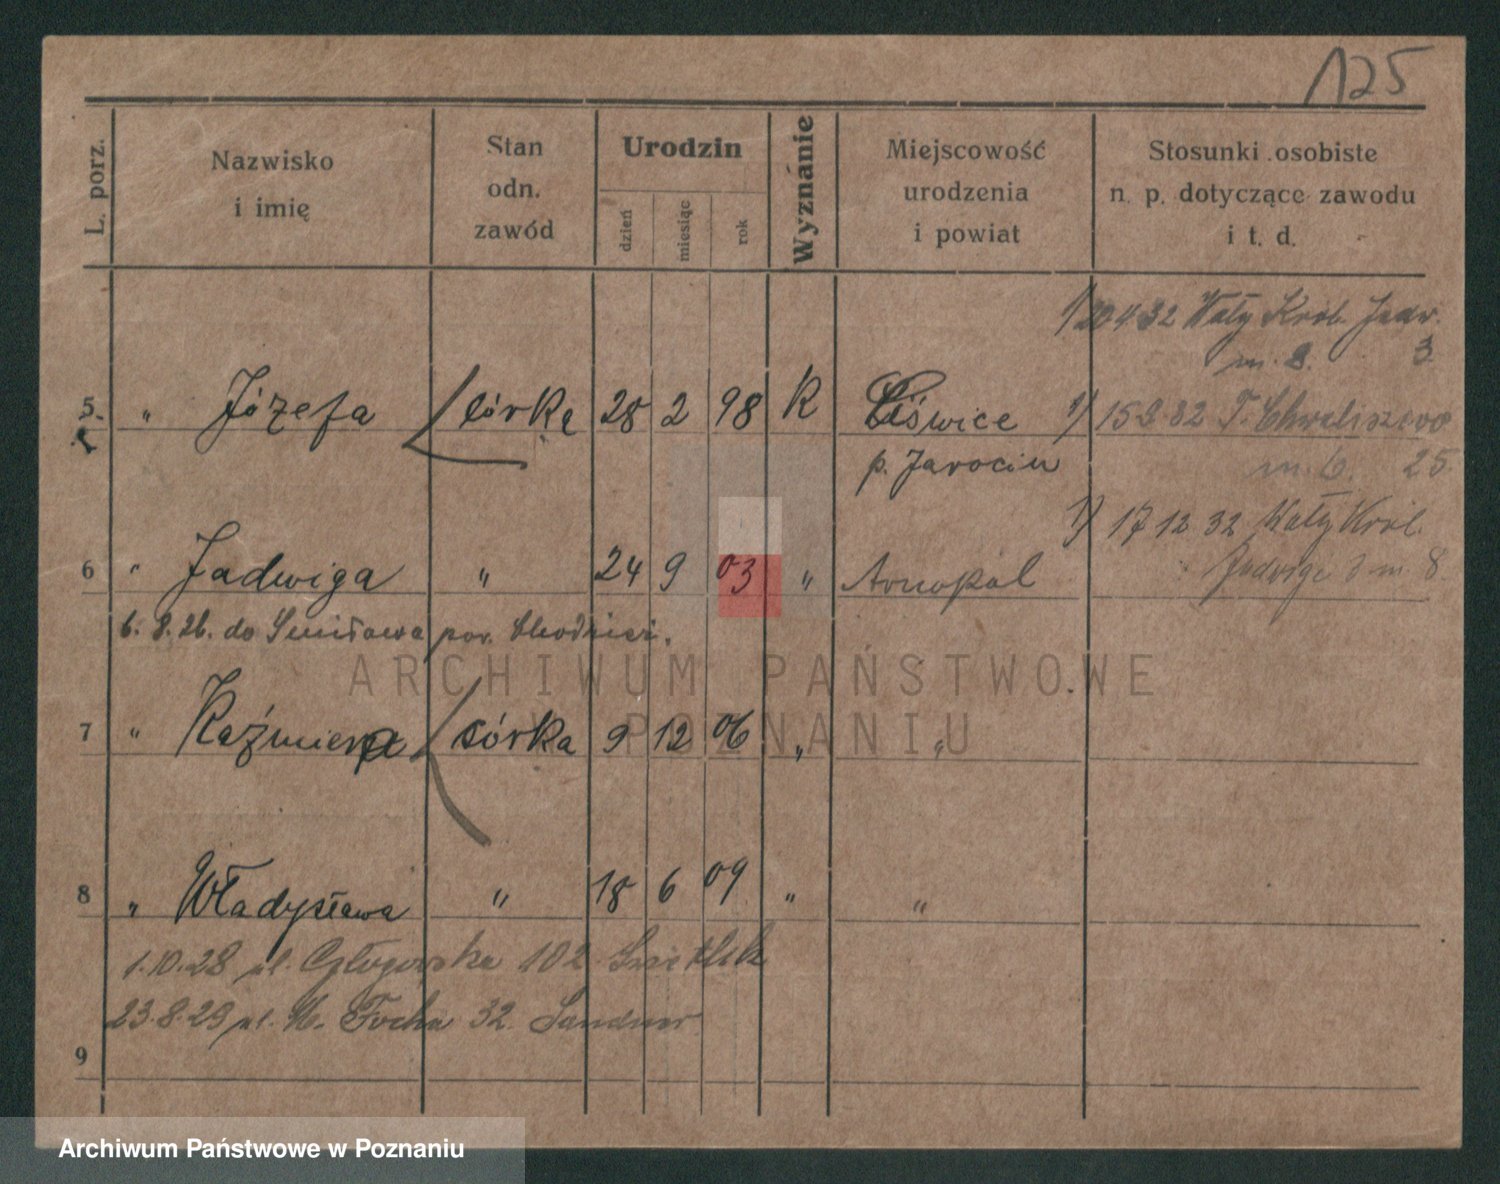 125
L. porz.
Nazwisko
i imię
Stan
odn.
zawód
Urodzin
dzień
miesiąc
rok
Wyznanie
Miejscowość
urodzenia
i powiat
Stosunki osobiste
n. p. dotyczące zawodu
i t. d.
1) 20 4 32 Wały Król. Jadw.
m. 8. 3
5. " Józefa córka 28 2 98 K
1) 15 8 32 Chwaliszewo
p. Jarocin m. 6. 25.
1) 17 12 32 Wały Król.
Jadwigi 3 m 8
6 " Jadwiga " 24 9 03 " Arnopol
6. 8. 26. do Smiłowa pow. Chodzież.
7 " Kaźmiera córka 9 12 06 " "
8 " Władysława " 18 6 09 " "
1.10.28 ul. Głogowska 102
23.8.29 ul. M. Focha 32.
9
ARCHIWUM PAŃSTWOWE
W POZNANIU
Archiwum Państwowe w Poznaniu